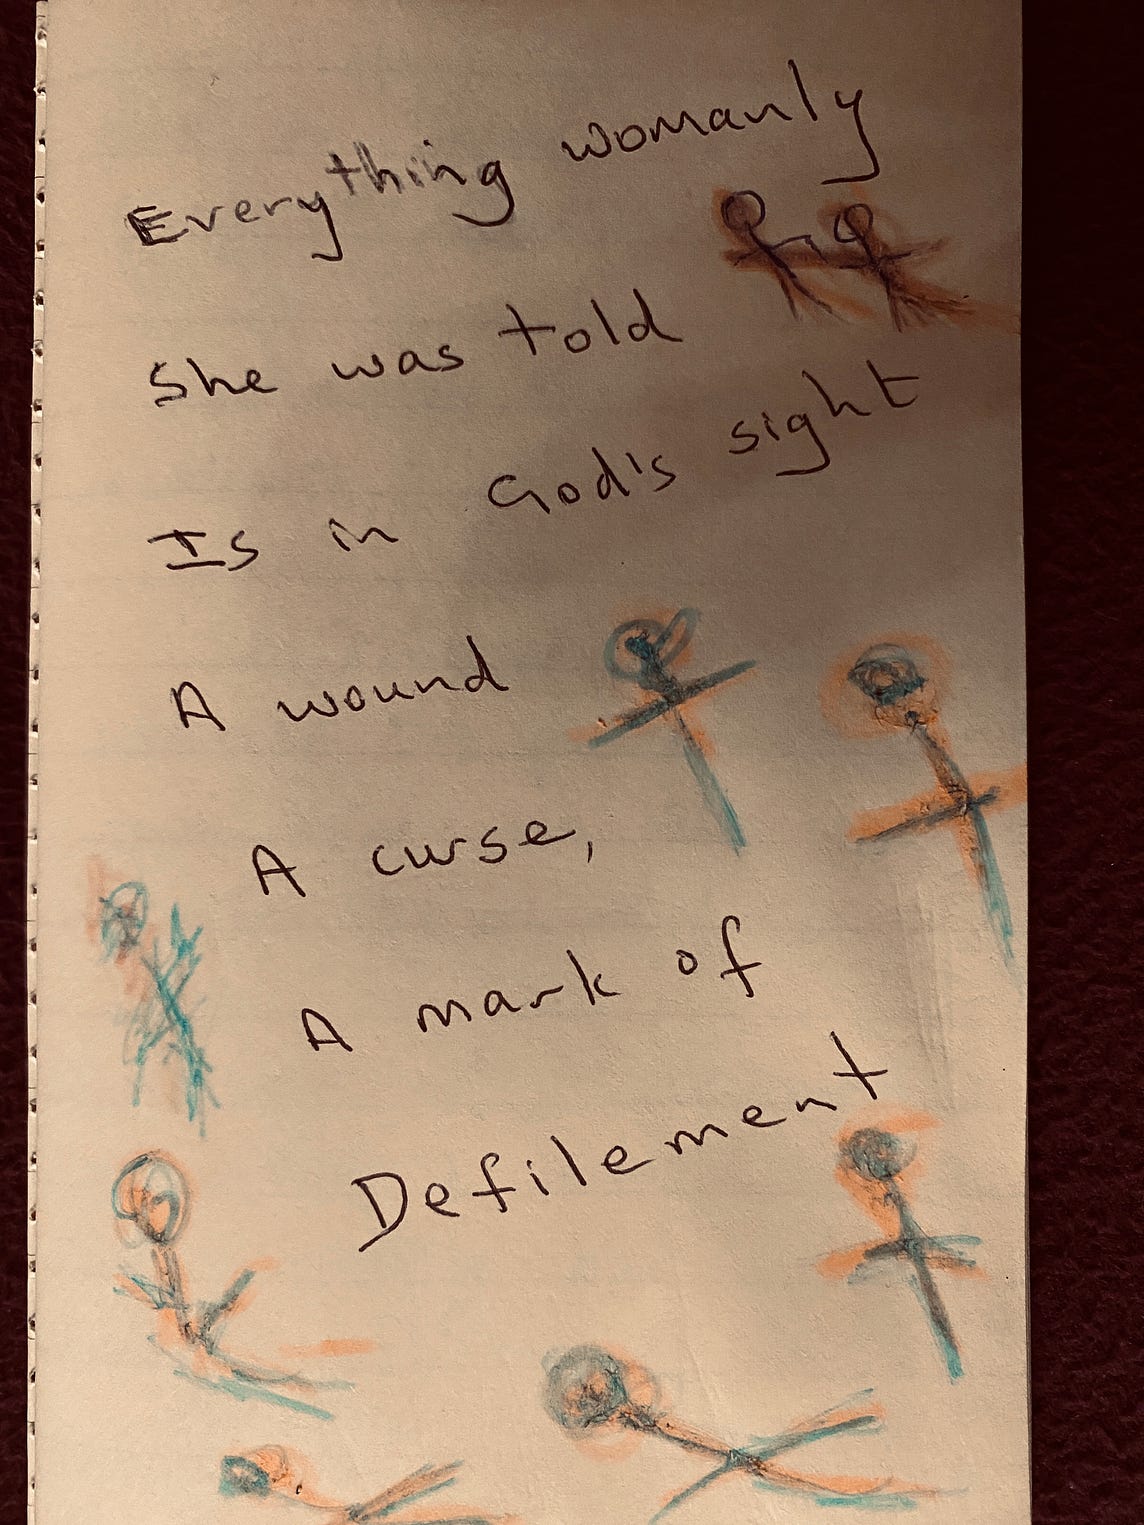 Everything womanly
She was told
Is in God's sight
A wound
A curse,
A mark of
Defilement